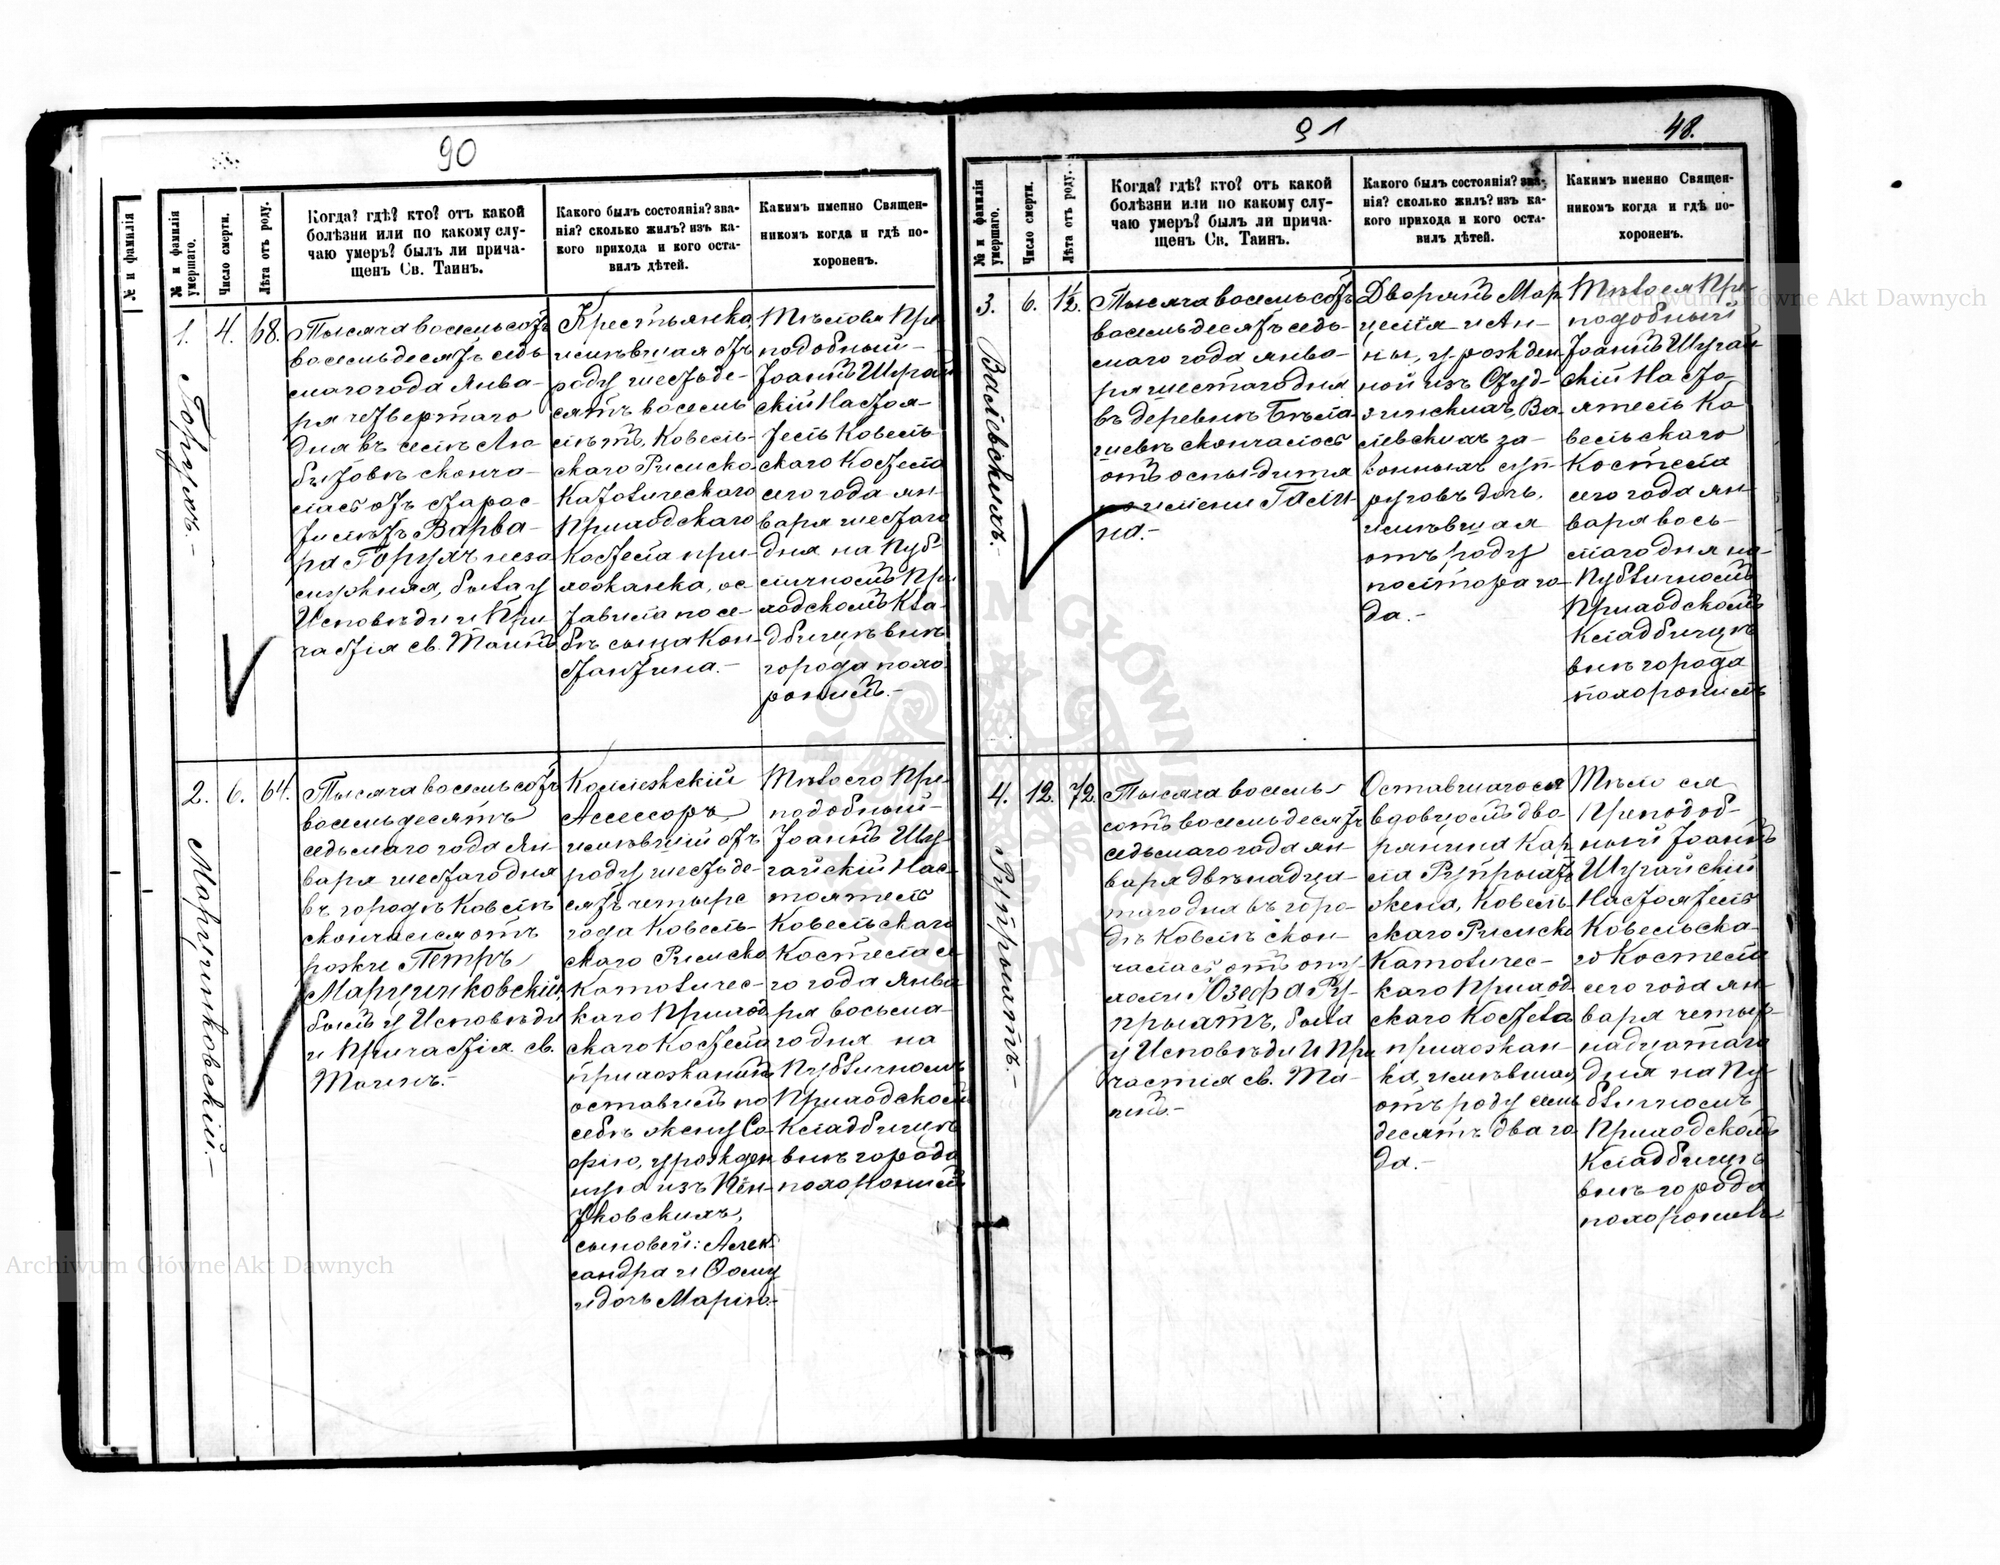 90
№ и фамилія
№ и фамилія
умершаго.
Число смерти.
Лѣта отъ роду.
Когда? гдѣ? кто? отъ какой
болѣзни или по какому слу-
чаю умеръ? былъ ли прича-
щенъ Св. Таинъ.
Какого былъ состоянія? зва-
нія? сколько жилъ? изъ ка-
кого прихода и кого оста-
вилъ дѣтей.
Какимъ именно Священ-
никомъ когда и гдѣ по-
хороненъ.
1.
Горгухъ.-
4.
68.
Тысяча восемьсотъ
восемьдесятъ седь
маго года Янва-
ря четвертаго
дня въ селѣ Лю-
битовѣ сконча-
лась отъ старос-
ти лѣтъ Варва-
ра
муж
была у
Исповѣди и При
частія св. Таинъ
Крестьянка,
имѣвшая отъ
роду шестьде-
сятъ восемь
лѣтъ, Ковель-
скаго Римско
Католическаго
Приходскаго
Костела при-
хожанка, ос-
тавила по се-
бѣ сына Кон-
стантина.-
Тѣло ея Пре
подобный-
Іоаннъ Шугай
скій Настоя-
тель Ковель-
скаго Костела
сего года ян-
варя шестаго
дня на Пуб-
личномъ При
ходскомъ Кла-
дбищѣ внѣ
города похо
ронилъ.-
2.
Марцинковскій.-
6.
64.
Тысяча восемьсотъ
восемьдесятъ
седьмаго года Ян-
варя шестаго дня
въ городѣ Ковелѣ
скончался отъ
рожи Петръ
Марцинковскій,
былъ у Исповѣди
и Причастія св.
Таинъ.-
Коллежскій
Ассесоръ,
имѣвшій отъ
роду шестьде-
сятъ четыре
года Ковель-
скаго Римско
Католичес-
каго Приход
скаго Костела
прихожанинъ
оставилъ по
себѣ жену Со
фію, урожден
ную изъ Пён-
тковскихъ,
сыновей: Алек-
сандра и Фому
и дочь Марію.-
Тѣло его Пре-
подобный-
Іоаннъ Шу-
гайскій Нас-
тоятель
Ковельскаго
Костела се
го года Янва
ря восьма-
го дня на
Публичномъ
Приходскомъ
Кладбищѣ
внѣ города
похоронилъ
91
48.
№ и фамилія
умершаго.
Число смерти.
Лѣта отъ роду.
Когда? гдѣ? кто? отъ какой
болѣзни или по какому слу-
чаю умеръ? былъ ли прича-
щенъ Св. Таинъ.
Какого былъ состоянія? зва-
нія? сколько жилъ? изъ ка-
кого прихода и кого оста-
вилъ дѣтей.
Какимъ именно Священ-
никомъ когда и гдѣ по-
хороненъ.
3.
Валевскихъ.
6.
1½.
Тысяча восемьсотъ
восемьдесятъ седь-
маго года янва-
ря шестаго дня
въ деревнѣ
скончалось
отъ оспы дитя
по имени Гали-
на.-
Дворянъ Мар
целія и Ан-
ны, урожден
ной изъ Студ-
зинскихъ, Ва
левскихъ за-
конныхъ суп-
руговъ дочь,
имѣвшая
отъ роду
полтора го-
да.-
Тѣло ея Пре-
подобный
Іоаннъ Шугай-
скій Насто-
ятель Ко
вельскаго
Костела
сего года ян-
варя вось-
маго дня на
Публичномъ
Приходскомъ
Кладбищѣ
внѣ города
похоронилъ
4.
Рупрыхтъ.-
12.
72.
Тысяча восемь
сотъ восемьдесятъ
седьмаго года ян-
варя двѣнадца-
таго дня въ горо-
дѣ Ковелѣ скон-
чалась отъ опу-
холи Юзефа Ру-
прыхтъ, была
у Исповѣди и При
частія св. Та-
инъ.-
Оставшагося
вдовцомъ дво-
рянина Кар
ла Рупрыхтъ
жена, Ковель
скаго Римско
Католичес-
каго Приход
скаго Костела
прихожан-
ка, имѣвшая
отъ роду семь
десятъ два го
да.-
Тѣло ея
Преподоб-
ный Іоаннъ
Шугайскій
Настоятель
Ковельска-
го Костела
сего года ян-
варя четыр-
надцатаго
дня на Пу-
бличномъ
Приходскомъ
Кладбищѣ
внѣ города
похоронилъ
Archiwum Główne Akt Dawnych
Archiwum Główne Akt Dawnych